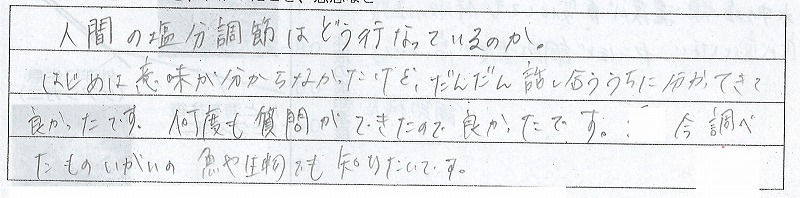 人間の塩分調節はどう行なっているのか。
はじめは意味が分からなかったけど、だんだん話し合ううちに分かってきて
良かったです。何度も質問ができたので良かったです。 今調べ
たものいがいの魚や生物でも知りたいです。